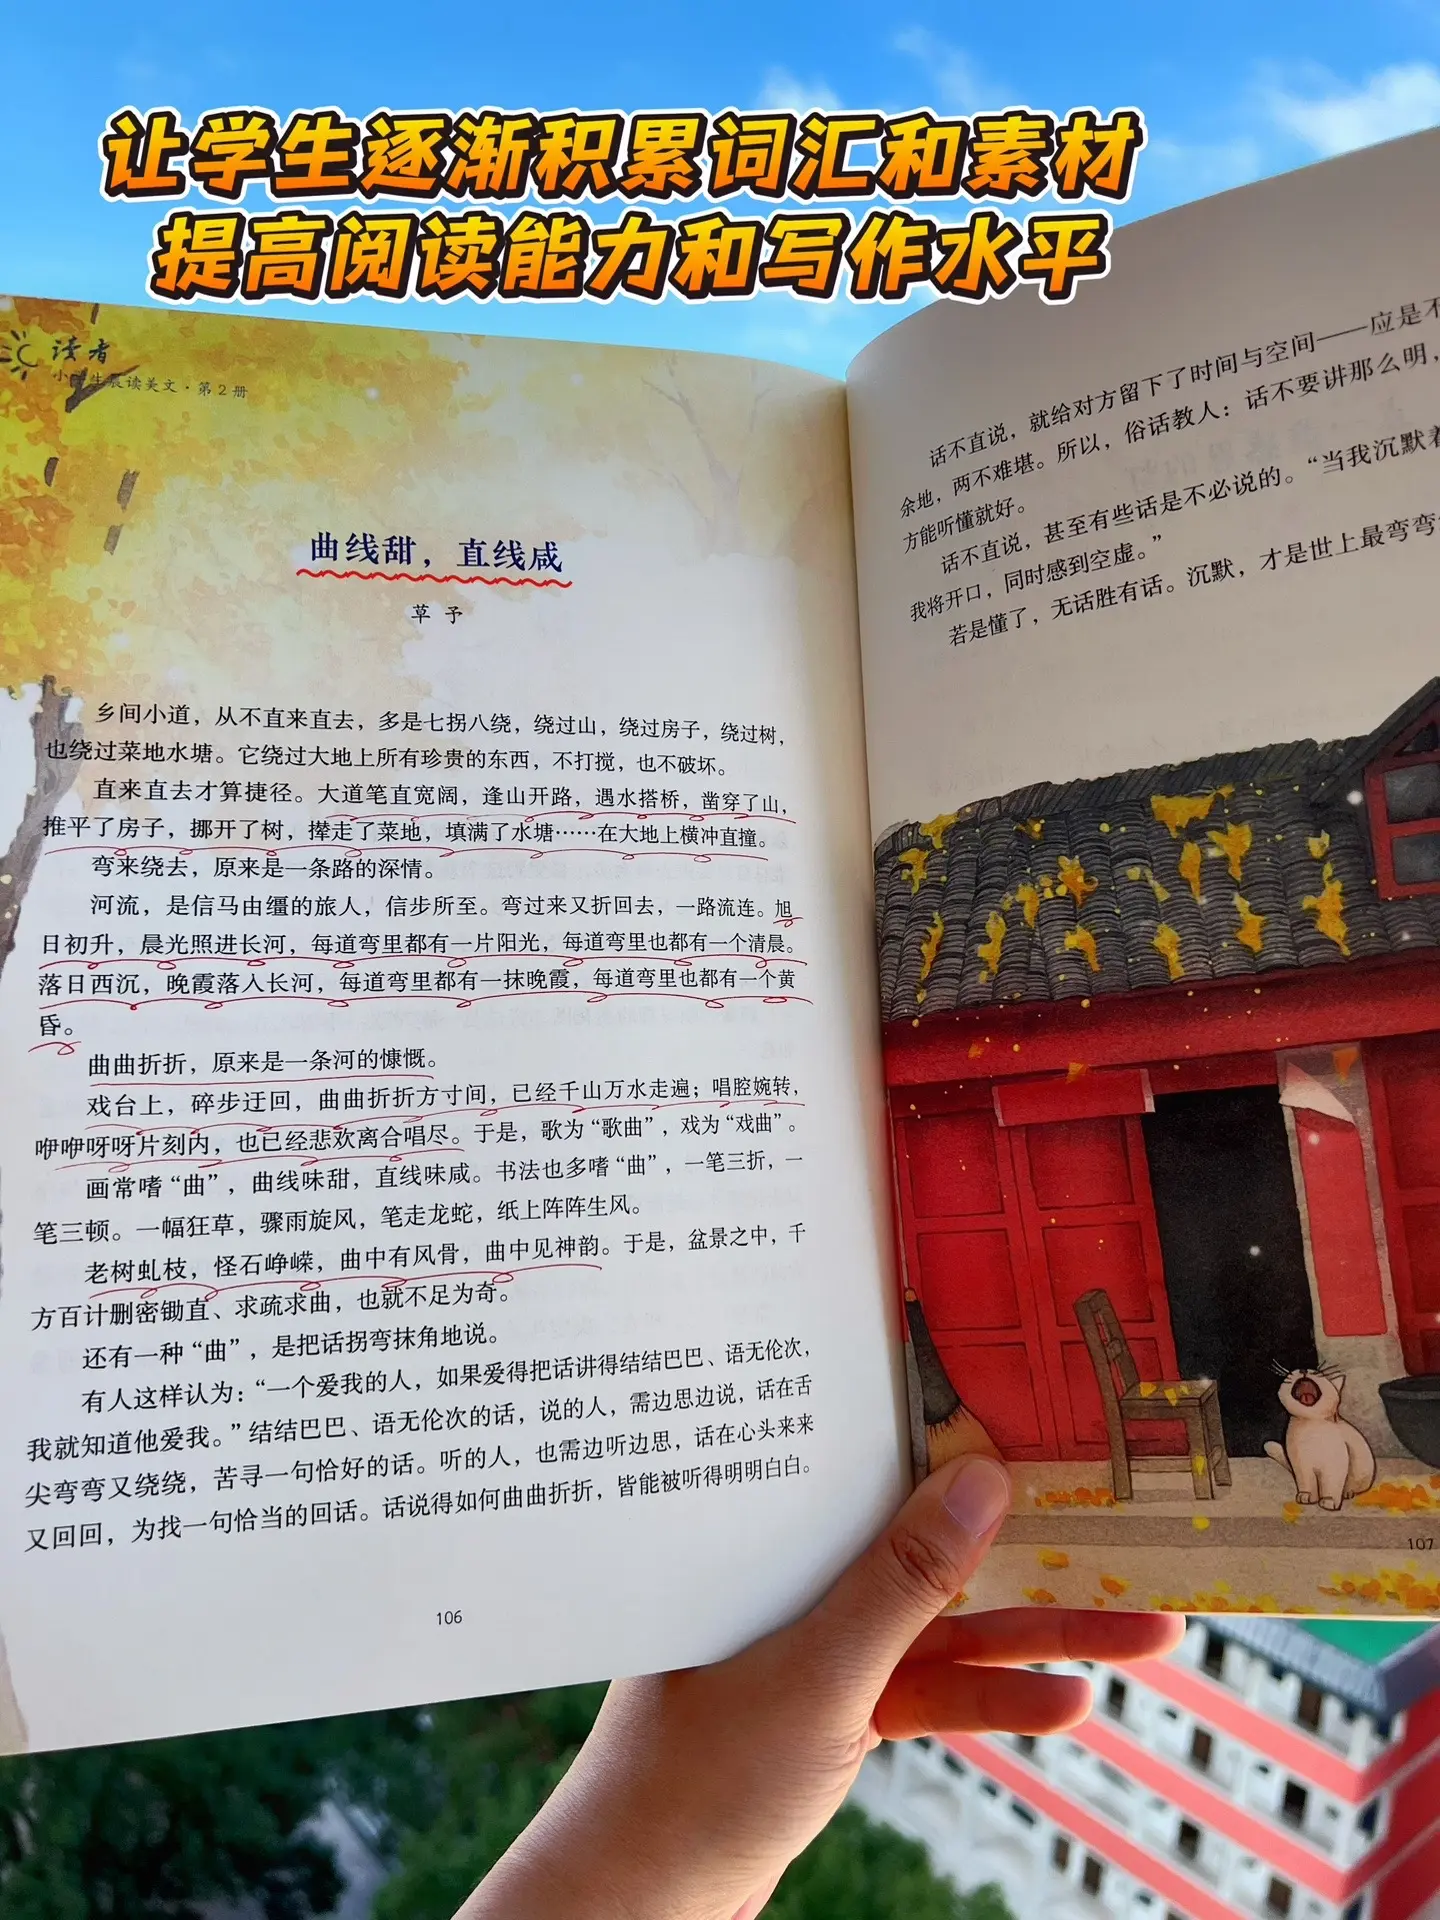 让学生逐渐积累词汇和素材
提高阅读能力和写作水平
读者
小学生晨读美文·第2册
曲线甜，直线咸
草 予
乡间小道，从不直来直去，多是七拐八绕，绕过山，绕过房子，绕过树，
也绕过菜地水塘。它绕过大地上所有珍贵的东西，不打搅，也不破坏。
直来直去才算捷径。大道笔直宽阔，逢山开路，遇水搭桥，凿穿了山，
推平了房子，挪开了树，撵走了菜地，填满了水塘……在大地上横冲直撞。
弯来绕去，原来是一条路的深情。
河流，是信马由缰的旅人，信步所至。弯过来又折回去，一路流连。旭
日初升，晨光照进长河，每道弯里都有一片阳光，每道弯里也都有一个清晨。
落日西沉，晚霞落入长河，每道弯里都有一抹晚霞，每道弯里也都有一个黄
昏。
曲曲折折，原来是一条河的慷慨。
戏台上，碎步迂回，曲曲折折方寸间，已经千山万水走遍；唱腔婉转，
咿咿呀呀片刻内，也已经悲欢离合唱尽。于是，歌为“歌曲”，戏为“戏曲”。
画常嗜“曲”，曲线味甜，直线味咸。书法也多嗜“曲”，一笔三折，一
笔三顿。一幅狂草，骤雨旋风，笔走龙蛇，纸上阵阵生风。
老树虬枝，怪石峥嵘，曲中有风骨，曲中见神韵。于是，盆景之中，千
方百计删密锄直、求疏求曲，也就不足为奇。
还有一种“曲”，是把话拐弯抹角地说。
有人这样认为：“一个爱我的人，如果爱得把话讲得结结巴巴、语无伦次，
我就知道他爱我。”结结巴巴、语无伦次的话，说的人，需边思边说，话在舌
尖弯弯又绕绕，苦寻一句恰好的话。听的人，也需边听边思，话在心头来来
又回回，为找一句恰当的回话。话说得如何曲曲折折，皆能被听得明明白白。
106
话不直说，就给对方留下了时间与空间——应是不
余地，两不难堪。所以，俗话教人：话不要讲那么明，
方能听懂就好。
话不直说，甚至有些话是不必说的。“当我沉默着
我将开口，同时感到空虚。”
若是懂了，无话胜有话。沉默，才是世上最弯弯
107